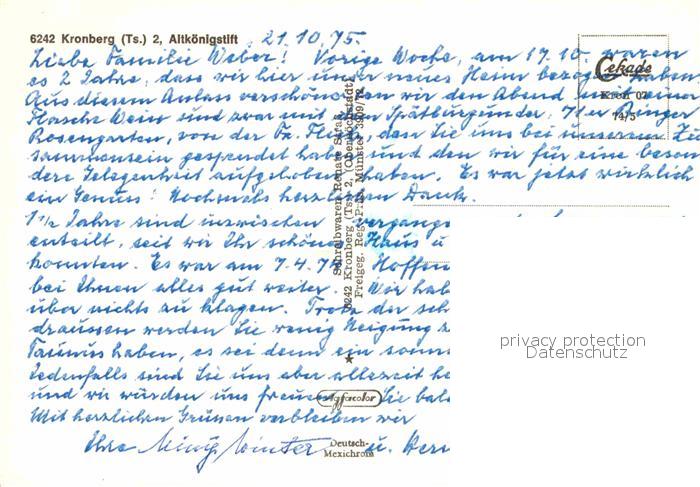 6242 Kronberg (Ts.) 2, Altkönigstift 21.10.75.
Liebe Familie Weber! Vorige Woche, am 17.10. waren
es 2 Jahre, dass wir hier unser neues Heim bezogen haben.
Aus diesem Anlass verschönten wir den Abend mit einer
Flasche Wein und zwar mit Spätburgunder, 71er Binger
Rosengarten, von der Fa. dass Sie uns bei unserem Zu
sammensein gespendet haben und den wir für eine beson
dere Gelegenheit aufgehoben haben. Es war jetzt wirklich
ein Genuss! Nochmals herzlichen Dank.
1½ Jahre sind inzwischen vergange
enteilt, seit wir Ihr schönes Haus u
konnten. Es war am 7.4.7 Hoffen
bei Ihnen alles gut weiter. Wir hab
über nichts zu klagen. Trotz der sch
draussen werden Sie wenig Neigung z
Taunus haben, es sei denn ein sonn
Jedenfalls sind Sie uns aber allezeit he
und wir würden uns freuen Sie bal
Mit herzlichen Grüssen verbleiben wir
Ihre Winter u. Herr
Cekade
Kron 07
74/5
Schreibwaren Renate Sattk
6242 Kronberg (Ts.) 2, (Oberhöchstadt)
Freigeg. Reg. Präs. Münster 3909/72
Agfacolor
Deutsch-
Mexichrom
privacy protection
Datenschutz